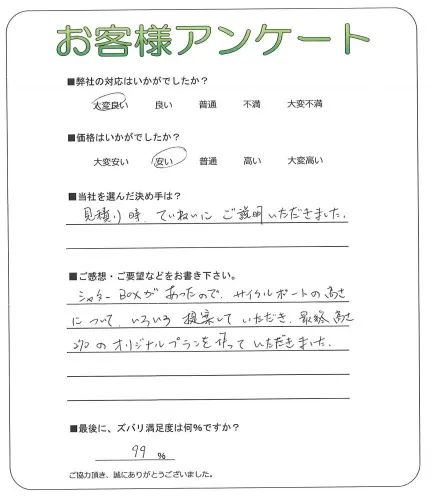 お客様アンケート
■弊社の対応はいかがでしたか？
大変良い 良い 普通 不満 大変不満
■価格はいかがでしたか？
大変安い 安い 普通 高い 大変高い
■当社を選んだ決め手は？
見積り時、ていねいに ご説明いただきました。
■ご感想・ご要望などをお書き下さい。
シャッターBOXがあったので、サイクルポートの高さ
について、いろいろ 提案して いただき、最終 高さ
270 の オリジナルプランを 作って いただきました。
■最後に、ズバリ満足度は何％ですか？
99 ％
ご協力頂き、誠にありがとうございました。